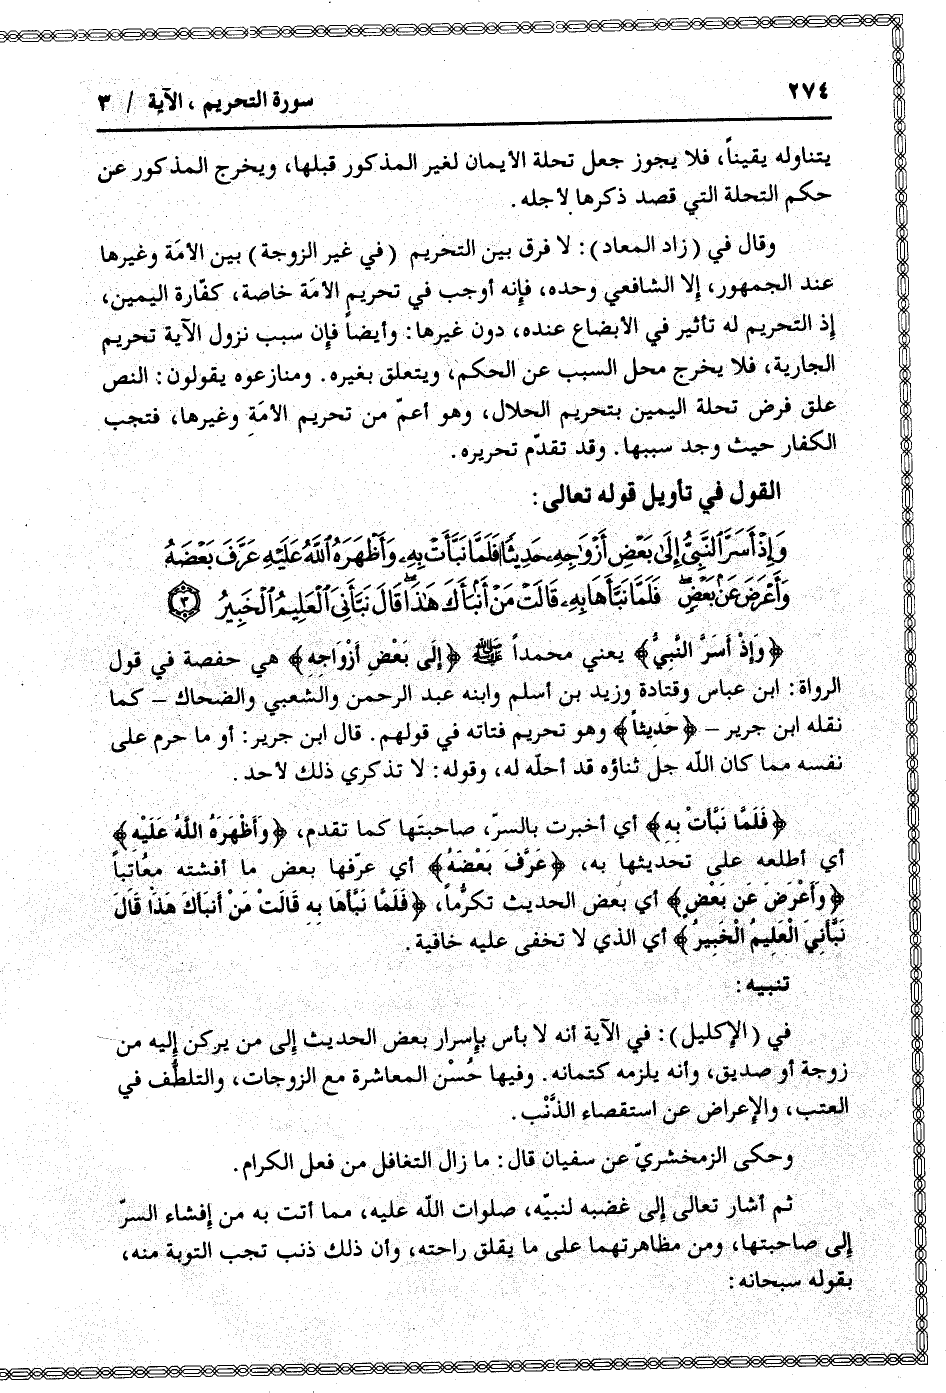 ٢٧٤
سورة التحريم ، الآية / ٣
يتناوله يقيناً، فلا يجوز جعل تحلة الأيمان لغير المذكور قبلها، ويخرج المذكور عن
حكم التحلة التي قصد ذكرها لأجله.
وقال في (زاد المعاد): لا فرق بين التحريم (في غير الزوجة) بين الأمَة وغيرها
عند الجمهور، إلا الشافعي وحده، فإنه أوجب في تحريم الأمَة خاصة، كفّارة اليمين،
إذ التحريم له تأثير في الأبضاع عنده، دون غيرها: وأيضاً فإن سبب نزول الآية تحريم
الجارية، فلا يخرج محل السبب عن الحكم، ويتعلق بغيره. ومنازعوه يقولون: النص
علق فرض تحلة اليمين بتحريم الحلال، وهو أعمّ من تحريم الأمَةِ وغيرها، فتجب
الكفار حيث وجد سببها. وقد تقدّم تحريره.
القول في تأويل قوله تعالى:
وَإِذْ أَسَرَّ ٱلنَّبِيُّ إِلَىٰ بَعْضِ أَزْوَٰجِهِۦ حَدِيثًا فَلَمَّا نَبَّأَتْ بِهِۦ وَأَظْهَرَهُ ٱللَّهُ عَلَيْهِ عَرَّفَ بَعْضَهُۥ
وَأَعْرَضَ عَنۢ بَعْضٍۖ فَلَمَّا نَبَّأَهَا بِهِۦ قَالَتْ مَنْ أَنۢبَأَكَ هَٰذَاۖ قَالَ نَبَّأَنِىَ ٱلْعَلِيمُ ٱلْخَبِيرُ ٣
﴿وَإِذْ أَسَرَّ النَّبِيُّ﴾ يعني محمداً ﷺ ﴿إِلَى بَعْضِ أَزْوَاجِهِ﴾ هي حفصة في قول
الرواة: ابن عباس وقتادة وزيد بن أسلم وابنه عبد الرحمن والشعبي والضحاك – كما
نقله ابن جرير – ﴿حَدِيثاً﴾ وهو تحريم فتاته في قولهم. قال ابن جرير: أو ما حرم على
نفسه مما كان الله جل ثناؤه قد أحلّه له، وقوله: لا تذكري ذلك لأحد.
﴿فَلَمَّا نَبَّأَتْ بِهِ﴾ أي أخبرت بالسرّ، صاحبتَها كما تقدم، ﴿وَأَظْهَرَهُ اللَّهُ عَلَيْهِ﴾
أي أطلعه على تحديثها به، ﴿عَرَّفَ بَعْضَهُ﴾ أي عرّفها بعض ما أفشته معُاتباً
﴿وَأَعْرَضَ عَن بَعْضٍ﴾ أي بعض الحديث تكرُّماً، ﴿فَلَمَّا نَبَّأَهَا بِهِ قَالَتْ مَنْ أَنبَأَكَ هَذَا قَالَ
نَبَّأَنِيَ الْعَلِيمُ الْخَبِيرُ﴾ أي الذي لا تخفى عليه خافية.
تنبيه:
في (الإكليل): في الآية أنه لا بأس بإسرار بعض الحديث إلى من يركن إليه من
زوجة أو صديق، وأنه يلزمه كتمانه. وفيها حُسْن المعاشرة مع الزوجات، والتلطُّف في
العتب، والإعراض عن استقصاء الذَّنْب.
وحكى الزمخشريّ عن سفيان قال: ما زال التغافل من فعل الكرام.
ثم أشار تعالى إلى غضبه لنبيّه، صلوات الله عليه، مما أتت به من إفشاء السرّ
إلى صاحبتها، ومن مظاهرتهما على ما يقلق راحته، وأن ذلك ذنب تجب التوبة منه،
بقوله سبحانه: